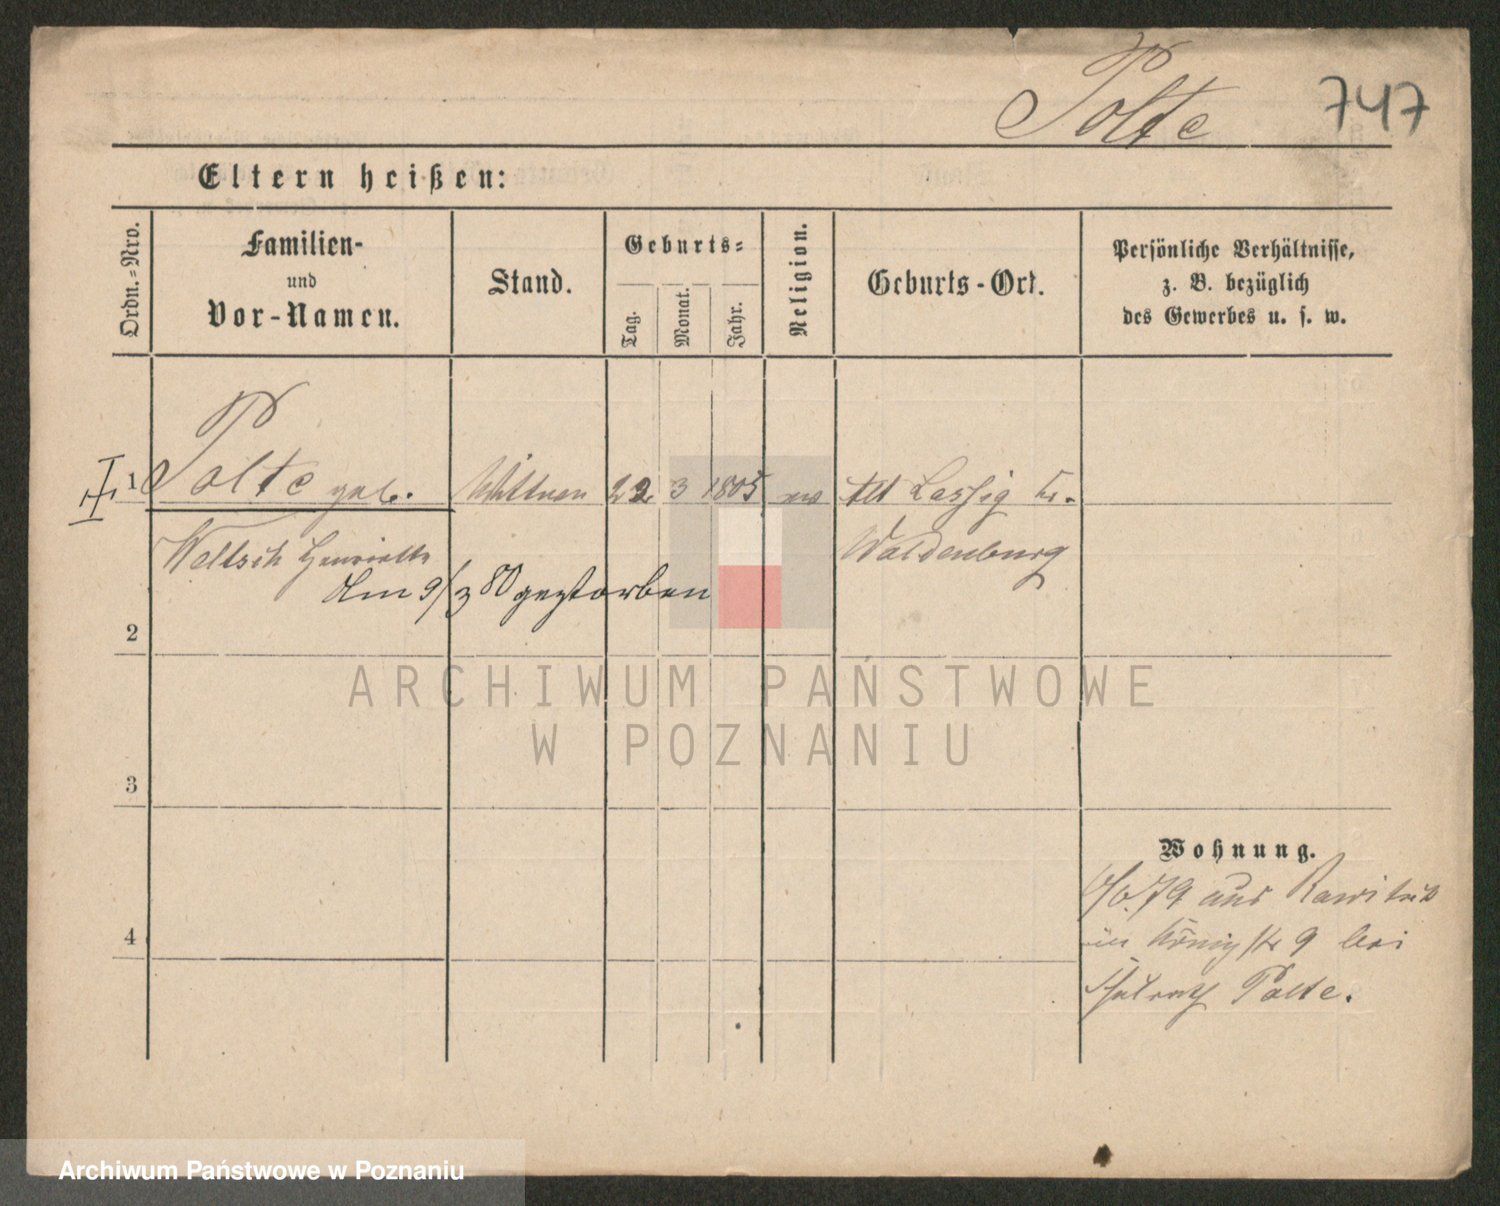 Polte
747
Eltern heißen:
Ordn.-Nro.
Familien-
und
Vor-Namen.
Stand.
Geburts-
Tag.
Monat.
Jahr.
Religion.
Geburts-Ort.
Persönliche Verhältnisse,
z. B. bezüglich
des Gewerbes u. s. w.
1
Polte geb. Wittwe 22 3 1805 ev Alt Lässig Kr.
Weltsch Henriette Waldenburg
Am 9/3 80 gestorben
2
3
4
Wohnung.
6/6.79 aus Rawitsch
Königstr 9 bei
Schulrath Polte.
ARCHIWUM PAŃSTWOWE
W POZNANIU
Archiwum Państwowe w Poznaniu